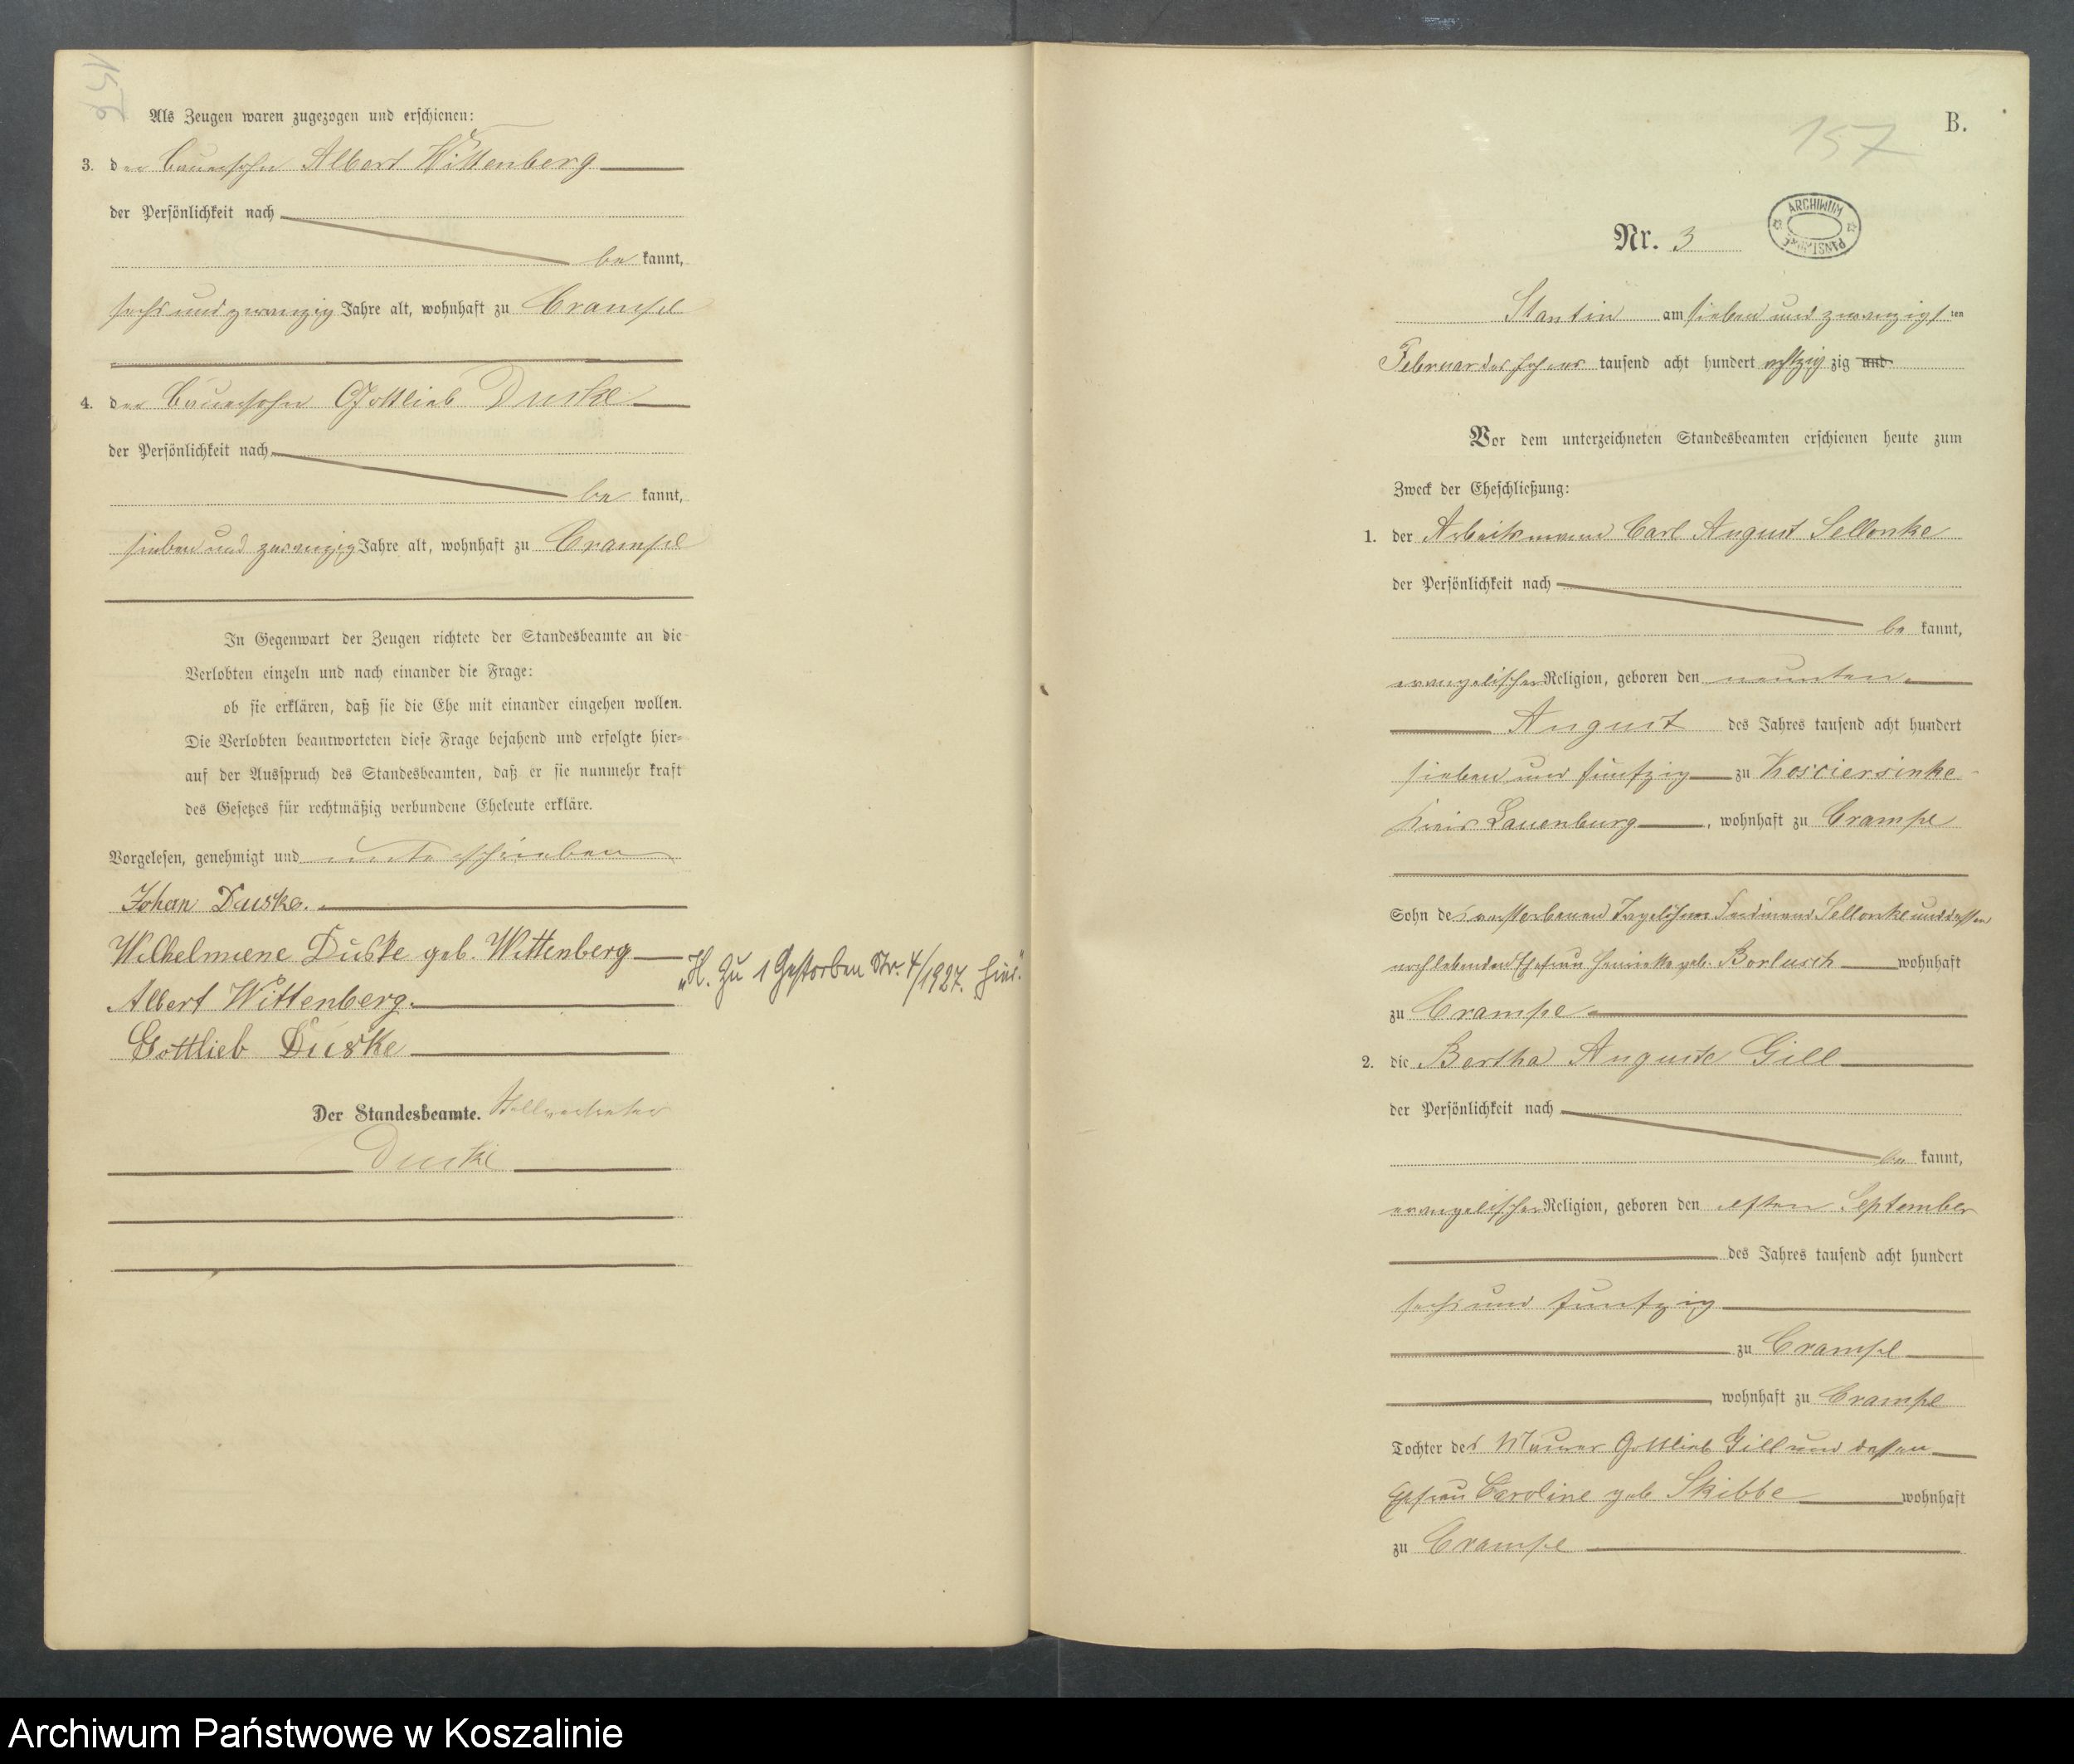 156
Als Zeugen waren zugezogen und erschienen:
3. der Bauersohn Albert Wittenberg
der Persönlichkeit nach
be kannt,
sechs und zwanzig Jahre alt, wohnhaft zu Crampe
4. der Bauersohn Gottlieb Duske
der Persönlichkeit nach
be kannt,
sieben und zwanzig Jahre alt, wohnhaft zu Crampe
In Gegenwart der Zeugen richtete der Standesbeamte an die
Verlobten einzeln und nach einander die Frage:
ob sie erklären, daß sie die Ehe mit einander eingehen wollen.
Die Verlobten beantworteten diese Frage bejahend und erfolgte hier-
auf der Ausspruch des Standesbeamten, daß er sie nunmehr kraft
des Gesetzes für rechtmäßig verbundene Eheleute erkläre.
Vorgelesen, genehmigt und unterschrieben
Johan Duske.
Wilhelmiene Duske geb. Wittenberg
„H. Zu 1 Gestorben Nr. 4/1927.
Albert Wittenberg.
Gottlieb Duske
Der Standesbeamte. Stellvertreter
Duske
157
B.
ARCHIWUM PAŃSTWOWE
Nr. 3
Stantin am sieben und zwanzigs ten
Februar des Jahres tausend acht hundert achtzig zig und
Vor dem unterzeichneten Standesbeamten erschienen heute zum
Zweck der Eheschließung:
1. der Arbeitsmann Carl August Sellonke
der Persönlichkeit nach
be kannt,
evangelischer Religion, geboren den neunten
August des Jahres tausend acht hundert
sieben und fünfzig zu Kosciersinke
Kreis Lauenburg, wohnhaft zu Crampe
Sohn des verstorbenen Tagelöhner Ferdinand Sellonke und dessen
noch lebenden Ehefrau Henriette geb. Borlusch wohnhaft
zu Crampe
2. die Bertha Auguste Gill
der Persönlichkeit nach
be kannt,
evangelischer Religion, geboren den elften September
des Jahres tausend acht hundert
sechs und fünfzig
zu Crampe
, wohnhaft zu Crampe
Tochter des Maurer Gottlieb Gill und dessen
Ehefrau Caroline geb Skibbe wohnhaft
zu Crampe
Archiwum Państwowe w Koszalinie